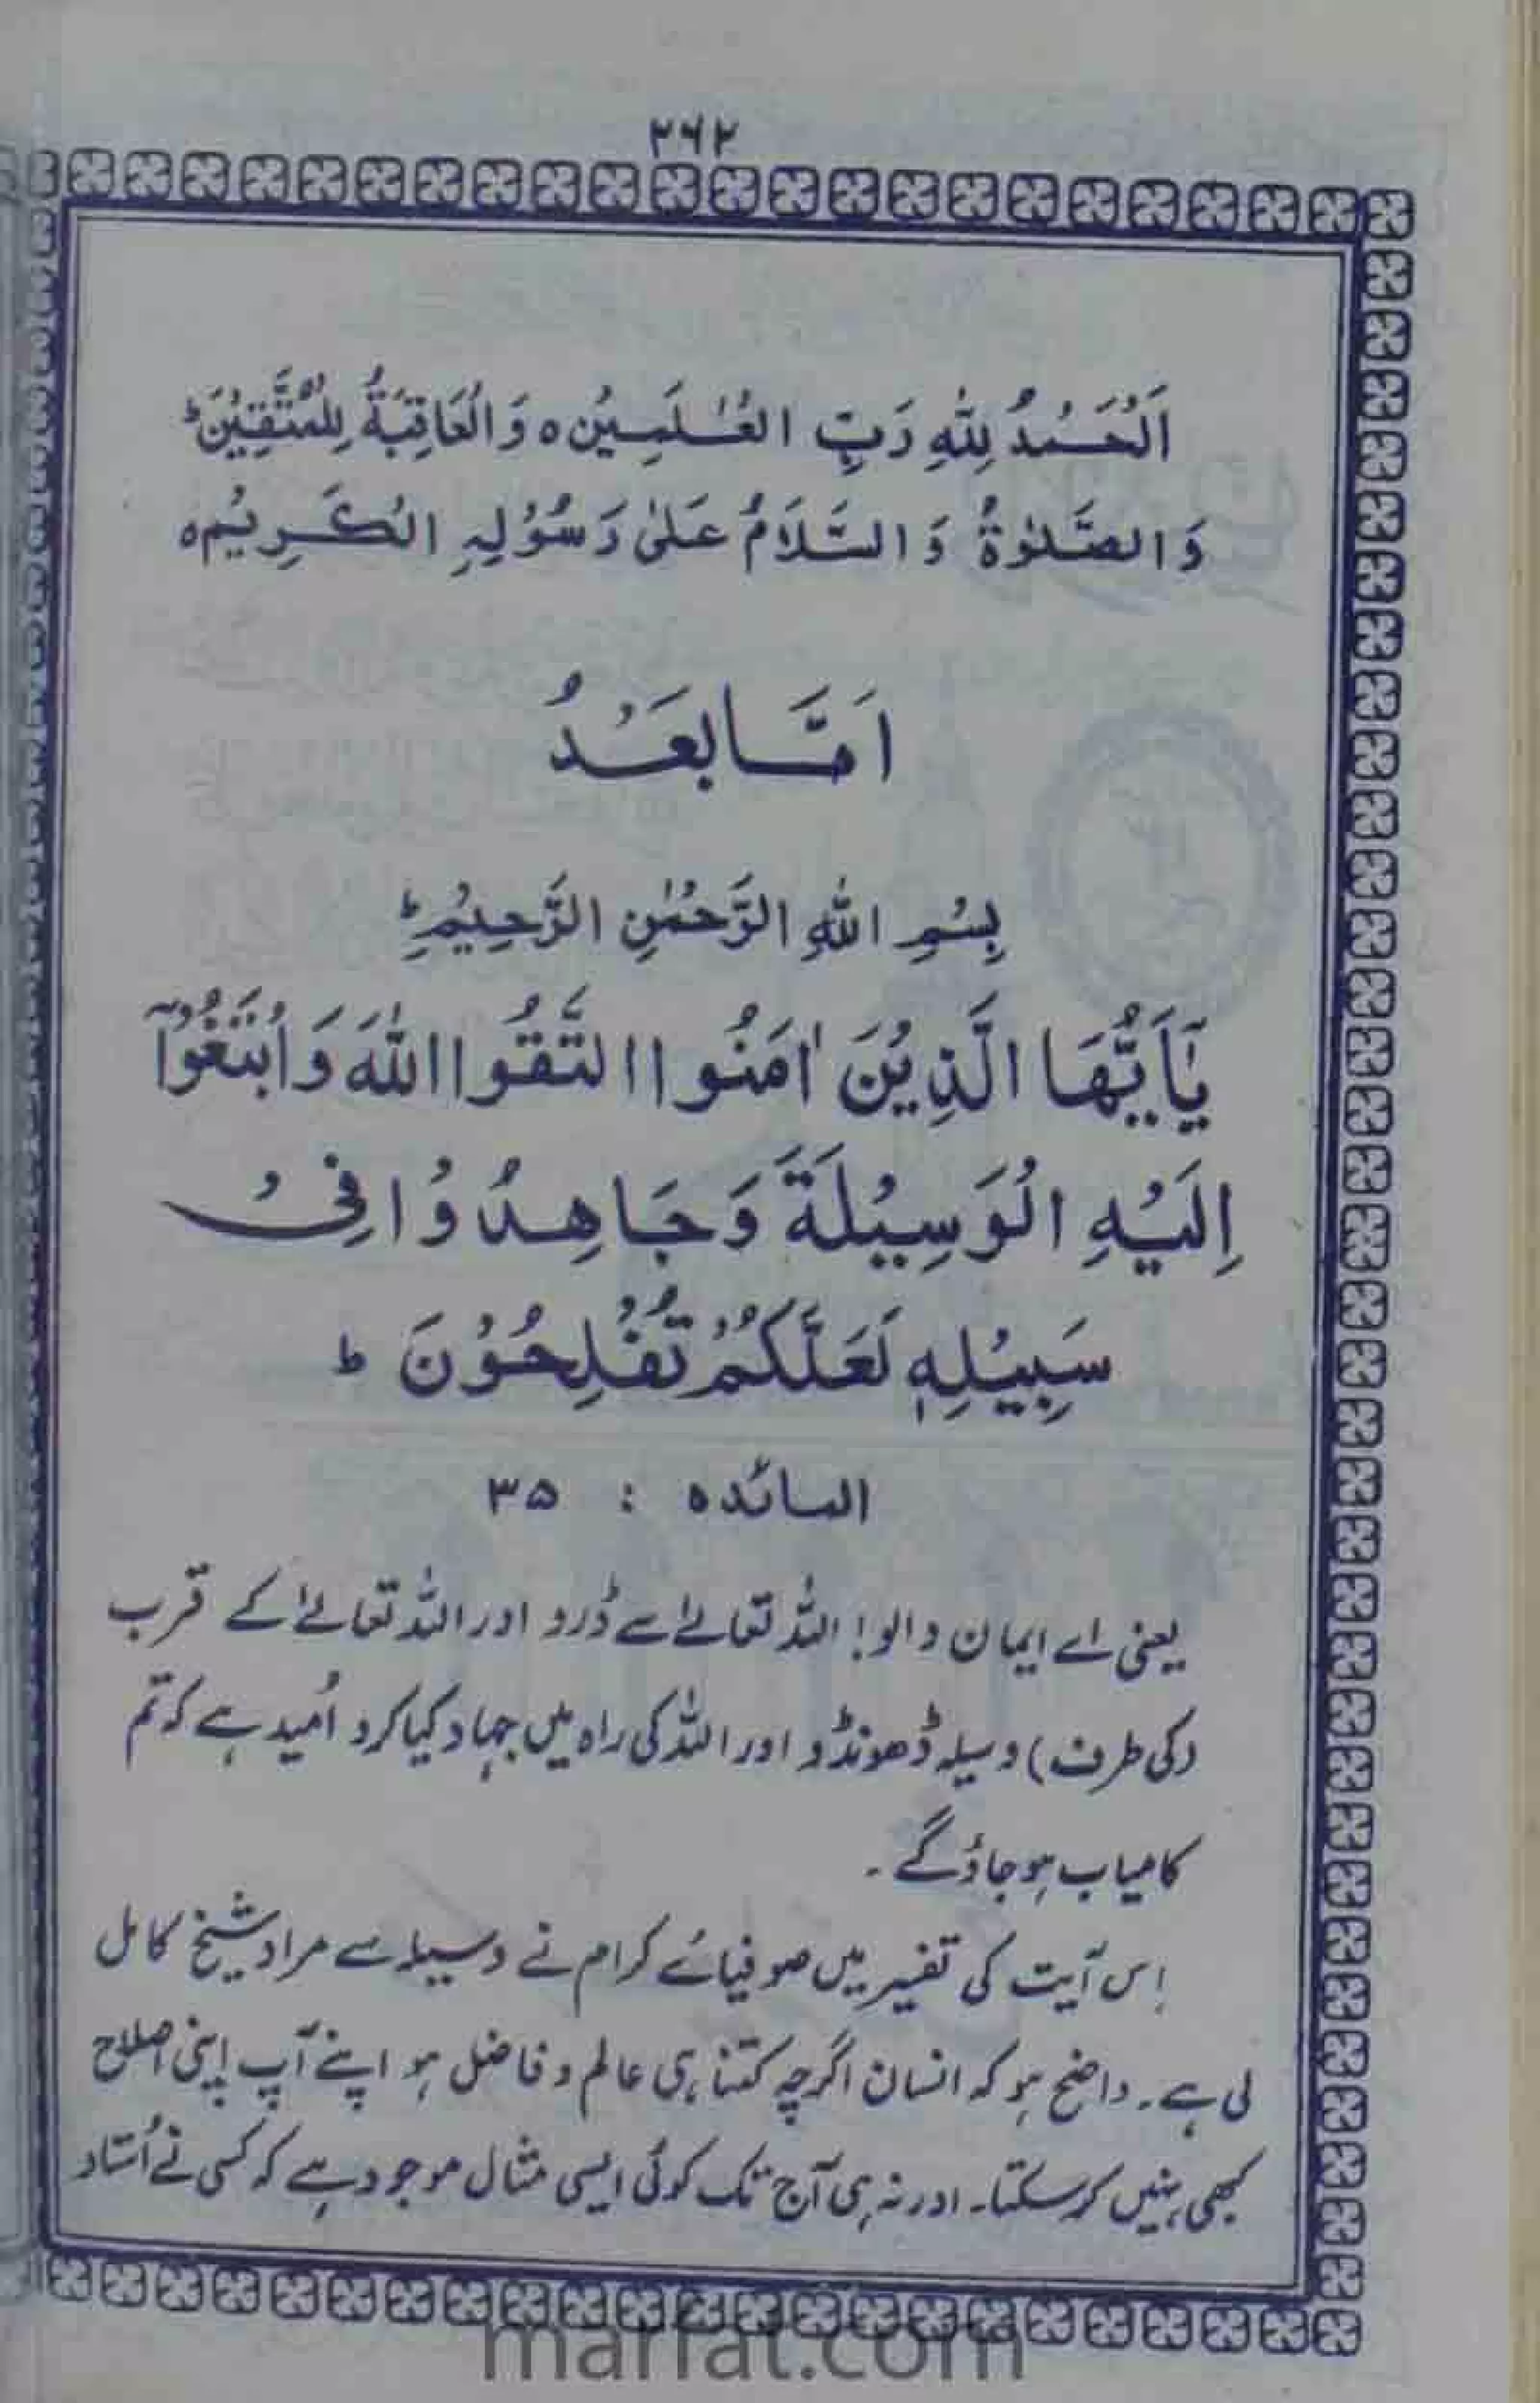 ۲۶۲
اَلْحَمْدُ لِلّٰهِ رَبِّ الْعٰلَمِيْنَ ہ وَالْعَاقِبَةُ لِلْمُتَّقِيْنَ ط
وَالصَّلٰوةُ وَالسَّلَامُ عَلٰى رَسُوْلِهِ الْكَرِيْمِ ہ
اَمَّا بَعْدُ
بِسْمِ اللّٰهِ الرَّحْمٰنِ الرَّحِيْمِ ط
يٰٓاَيُّهَا الَّذِيْنَ اٰمَنُوا اتَّقُوا اللّٰهَ وَابْتَغُوْٓا
اِلَيْهِ الْوَسِيْلَةَ وَجَاهِدُوْا فِيْ
سَبِيْلِهٖ لَعَلَّكُمْ تُفْلِحُوْنَ ط
المائدہ : ۳۵
یعنی اے ایمان والو! اللہ تعالےٰ سے ڈرو اور اللہ تعالےٰ کے قرب
(کی طرف) وسیلہ ڈھونڈو اور اللہ کی راہ میں جہاد کیا کرو اُمید ہے کہ تم
کامیاب ہو جاؤ گے ۔
اِس آیت کی تفسیر میں صوفیائے کرام نے وسیلہ سے مراد شیخ کامل
لی ہے۔ واضح ہو کہ انسان اگرچہ کتنا ہی عالم و فاضل ہو اپنے آپ اپنی اصلاح
کبھی نہیں کر سکتا۔ اور نہ ہی آج تک کوئی ایسی مثال موجود ہے کہ کسی نے اُستاد
marfat.com